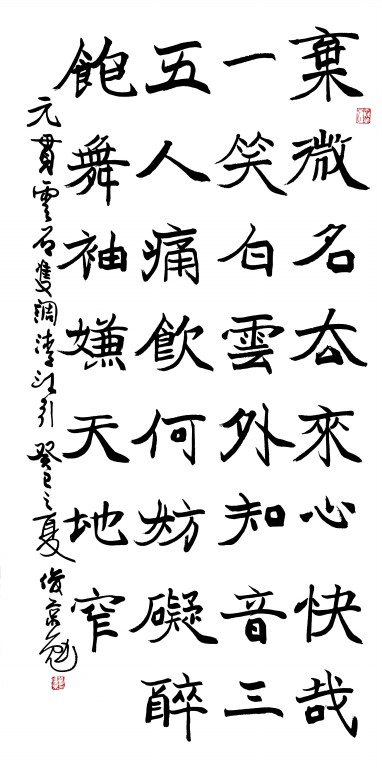 棄微名去來心快哉
一笑白雲外知音三
五人痛飲何妨礙醉
飽舞袖嫌天地窄
元貫雲石雙調清江引 癸巳之夏 俊京